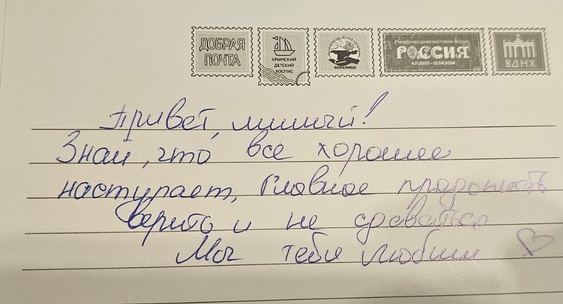 ДОБРАЯ ПОЧТА
КРЫМСКИЙ ДЕТСКИЙ ХОСПИС
РОССИЯ
ВДНХ
Привет, милый!
Знай, что все хорошее
наступает, Главное продолжать
верить и не сдаваться
Мы тебя любим ♡